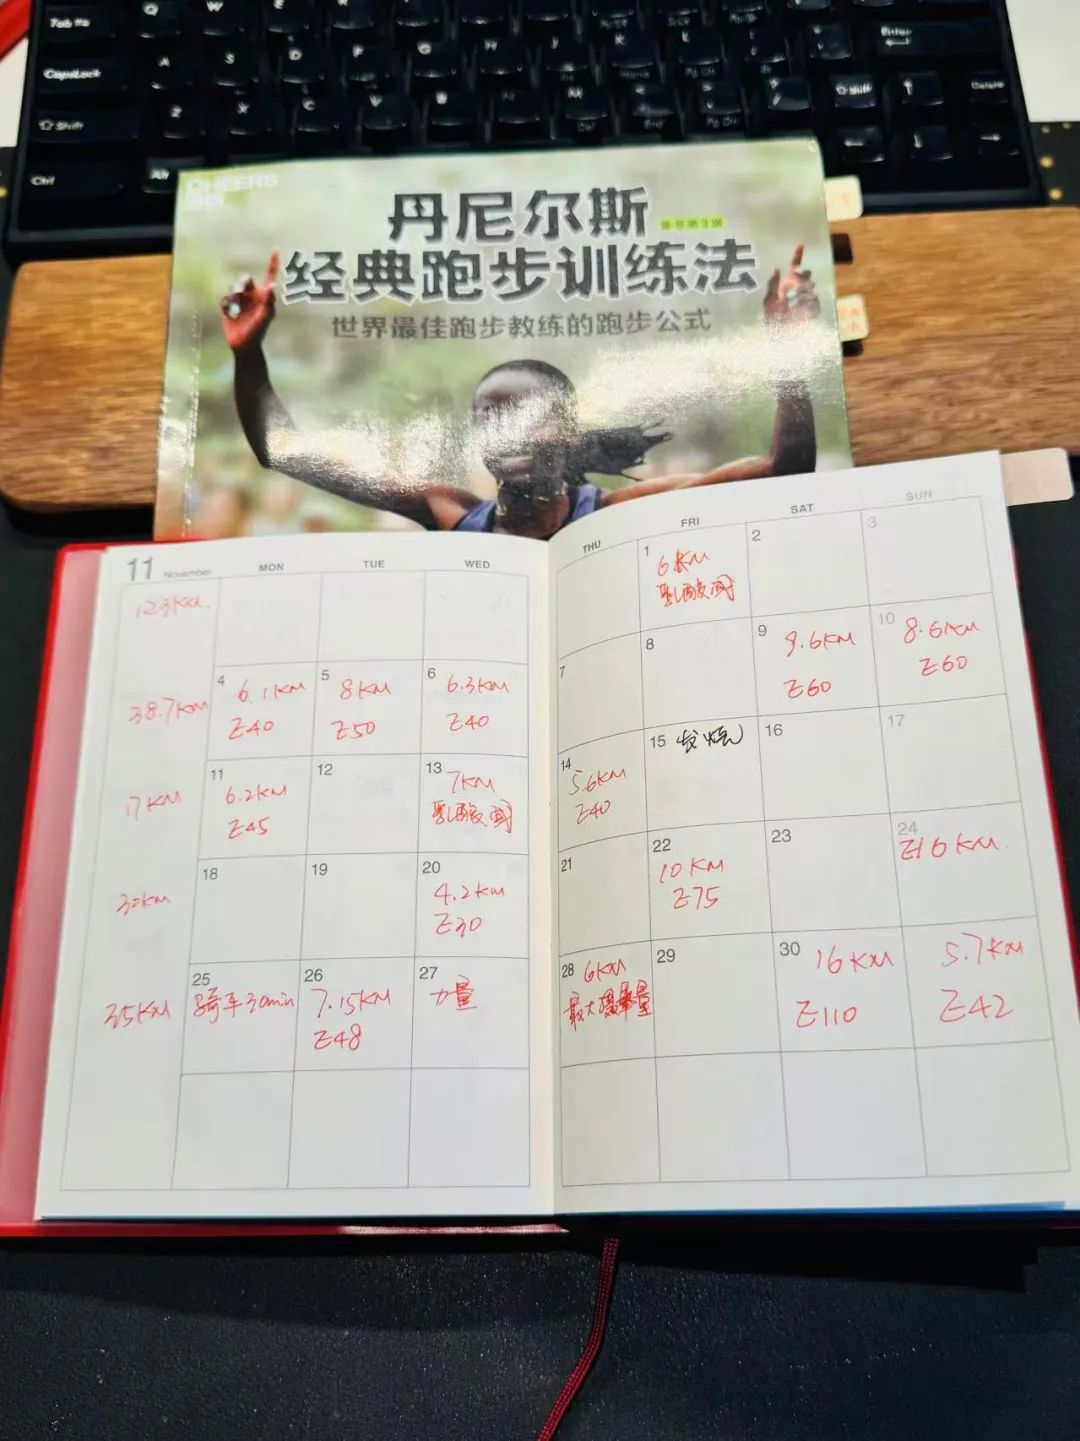 Q
W
Tab
CapsLock
A
S
D
F
G
H
J
K
L
Enter
Shift
Z
X
C
V
B
N
M
Shift
Delete
Ctrl
Alt
CHEERS
丹尼尔斯
原书第3版
经典跑步训练法
世界最佳跑步教练的跑步公式
11 November
MON
TUE
WED
THU
FRI
SAT
SUN
123KM.
1
6KM
乳酸阈
2
3
38.7KM
4
6.1KM
E40
5
8KM
E50
6
6.3KM
E40
7
8
9
9.6KM
E60
10
8.6KM
E60
17KM
11
6.2KM
E45
12
13
7KM
乳酸阈
14
5.6KM
E40
15 发烧
16
17
30KM
18
19
20
4.2KM
E30
21
22
10KM
E75
23
24
E16KM.
35KM
25
骑车30min
26
7.15KM
E48
27
力量
28
6KM
最大摄氧量
29
30
16KM
E110
5.7KM
E42